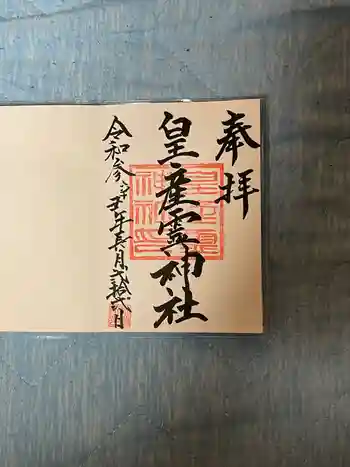 奉拝
皇産霊神社
令和参辛丑年長月弐拾弐日